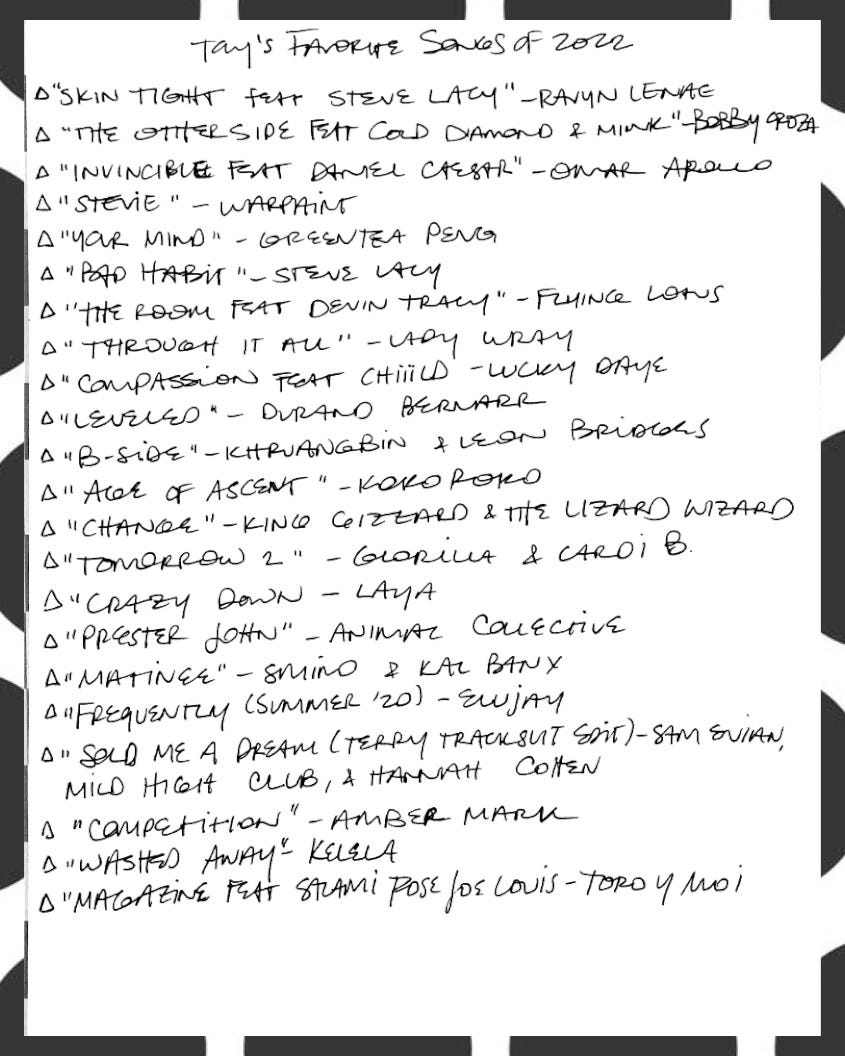 Tay's Favorite Songs of 2022
Δ "SKIN TIGHT feat STEVE LACY" - RAVYN LENAE
Δ "THE OTHER SIDE FEAT COLD DIAMOND & MINK" - BOBBY OROZA
Δ "INVINCIBLE FEAT DANIEL CAESAR" - OMAR APOLLO
Δ "STEVIE" - WARPAINT
Δ "YOUR MIND" - GREENTEA PENG
Δ "BAD HABIT" - STEVE LACY
Δ "THE ROOM FEAT DEVIN TRACY" - FLYING LOTUS
Δ "THROUGH IT ALL" - LADY WRAY
Δ "COMPASSION FEAT CHIIILD - LUCKY DAYE
Δ "LEVELED" - DURAND BERNARR
Δ "B-SIDE" - KHRUANGBIN & LEON BRIDGES
Δ "AGE OF ASCENT" - KOKOROKO
Δ "CHANGE" - KING GIZZARD & THE LIZARD WIZARD
Δ "TOMORROW 2" - GLORILLA & CARDI B.
Δ "CRAZY DOWN - LAYA
Δ "PRESTER JOHN" - ANIMAL COLLECTIVE
Δ "MATINEE" - SMINO & KAL BANX
Δ "FREQUENTLY (SUMMER '20) - EWJAY
Δ "SOLD ME A DREAM (TERRY TRACKSUIT EDIT) - SAM EVIAN,
MILD HIGH CLUB, & HANNAH COHEN
Δ "COMPETITION" - AMBER MARK
Δ "WASHED AWAY" - KELELA
Δ "MAGAZINE FEAT SALAMI ROSE JOE LOUIS - TORO Y MOI